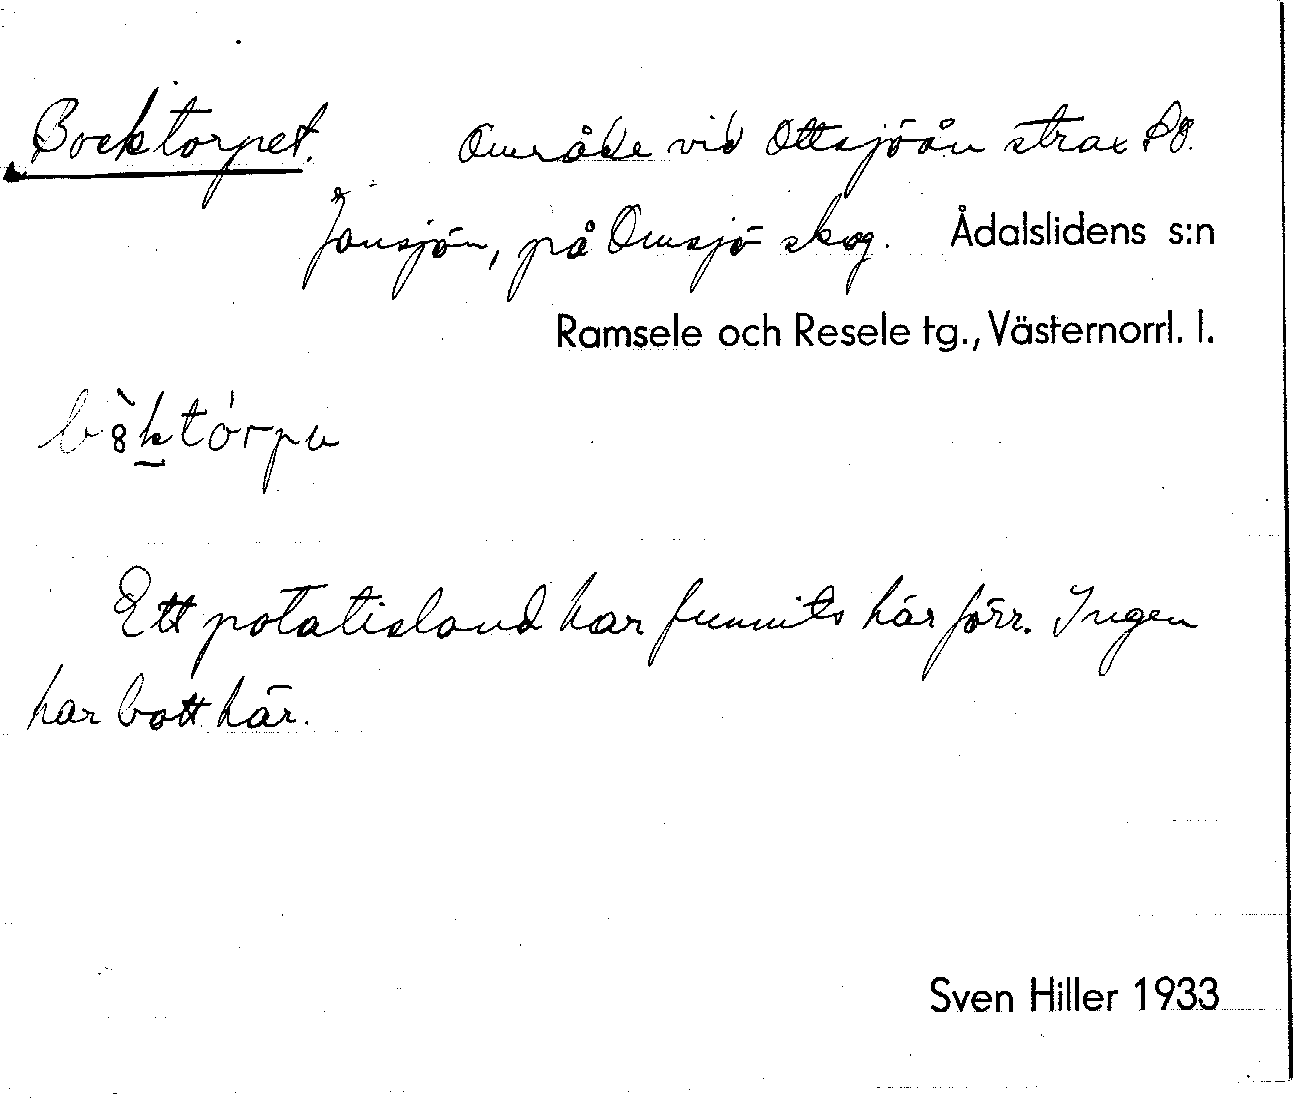 Bocktorpet. Område vid Ottsjöån strax SO.
Jansjön, på Omsjö skog. Ådalslidens s:n
Ramsele och Resele tg., Västernorrl. l.
Ett potatisland har funnits här förr. Ingen
har bott här.
Sven Hiller 1933